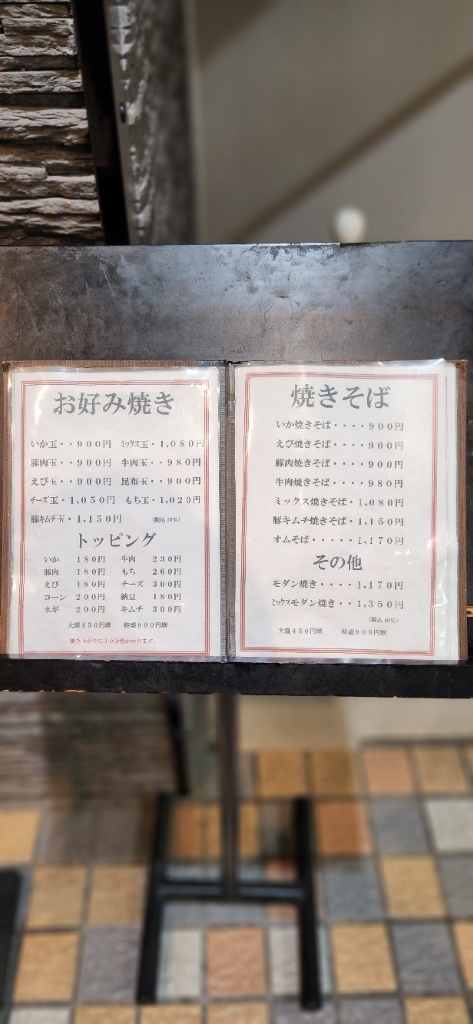 お好み焼き
いか玉・・900円 ミックス玉・1,080円
豚肉玉・・900円 牛肉玉・・980円
えび玉・・900円 昆布玉・・900円
チーズ玉・1,050円 もち玉・1,020円
豚キムチ玉・1,150円 (税込10%)
トッピング
いか 180円 牛肉 230円
豚肉 180円 もち 260円
えび 180円 チーズ 300円
コーン 200円 納豆 180円
ネギ 200円 キムチ 300円
大盛450円増 特盛900円増
焼き上がりに20分位かかります。
焼きそば
いか焼きそば・・・・900円
えび焼きそば・・・・900円
豚肉焼きそば・・・・900円
牛肉焼きそば・・・・980円
ミックス焼きそば・1,080円
豚キムチ焼きそば・1,150円
オムそば・・・・・1,170円
その他
モダン焼き・・・・1,170円
ミックスモダン焼き・・1,350円
(税込10%)
大盛450円増 特盛900円増